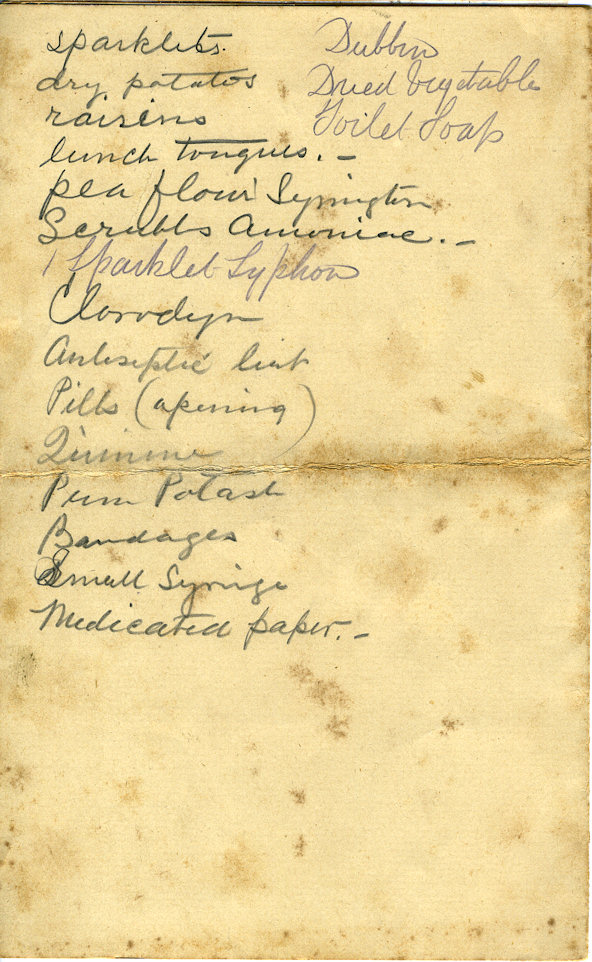 sparklets.
dry potatos
raisins
lunch tongues. –
pea flour Symington
Scrubbs Amoniac. –
1 Sparklet Syphon
Clorodyn
Antiseptic lint
Pills (opening)
Quinine
Perm Potash
Bandages
Small Syringe
Medicated paper. –
Dubbin
Dried Vegetable
Toilet Soap